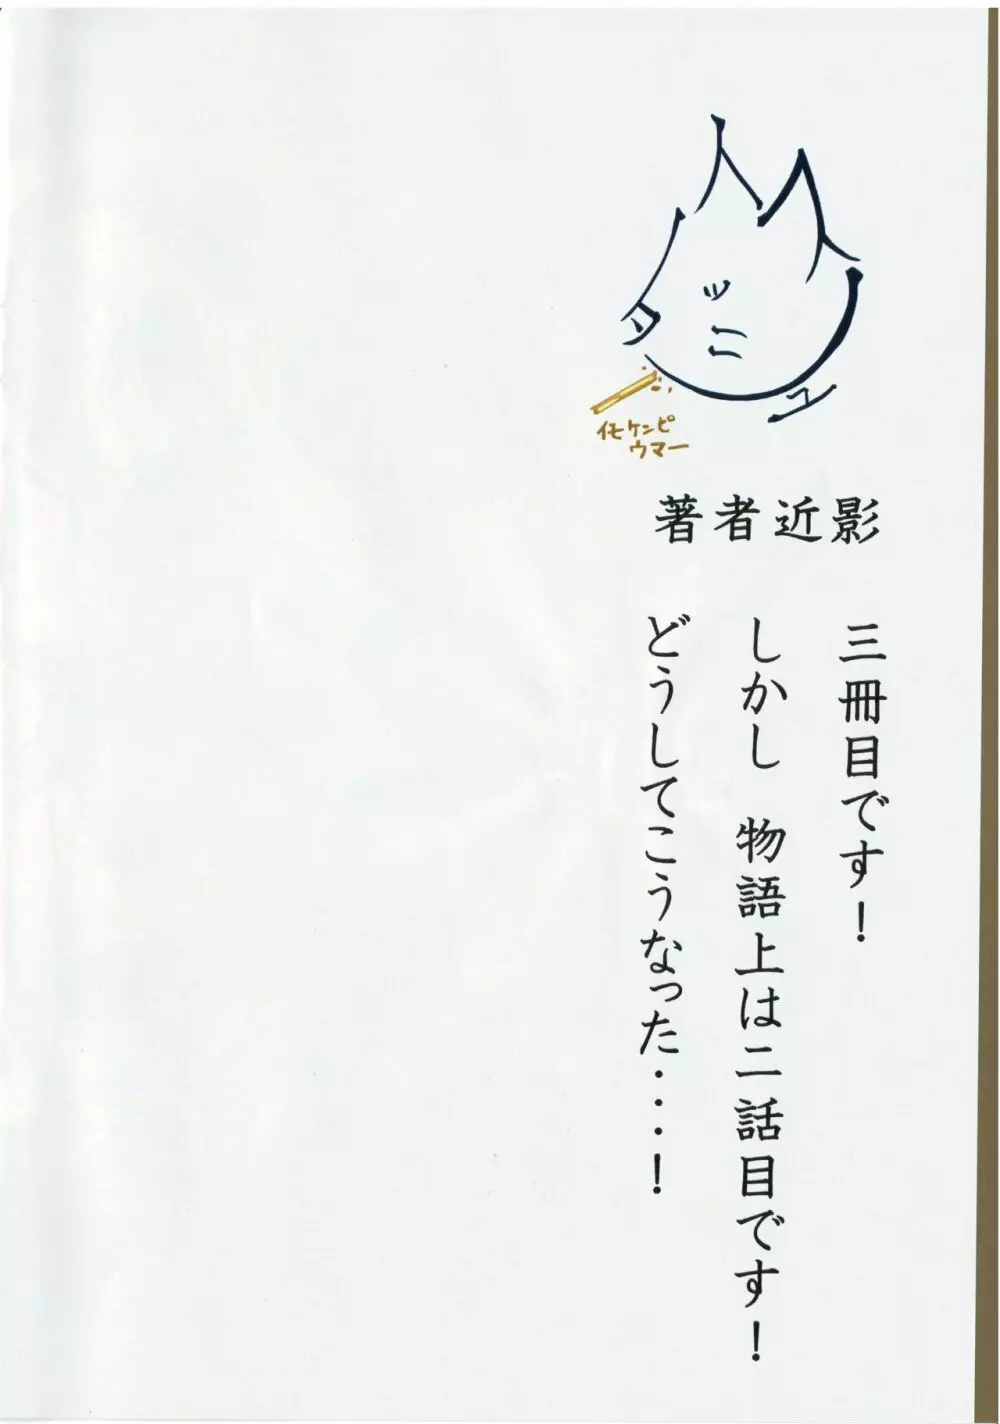 ツ
ニ
タ
ユ
イモケンピ
ウマー
著者近影
三冊目です！
しかし　物語上は二話目です！
どうしてこうなった・・・！